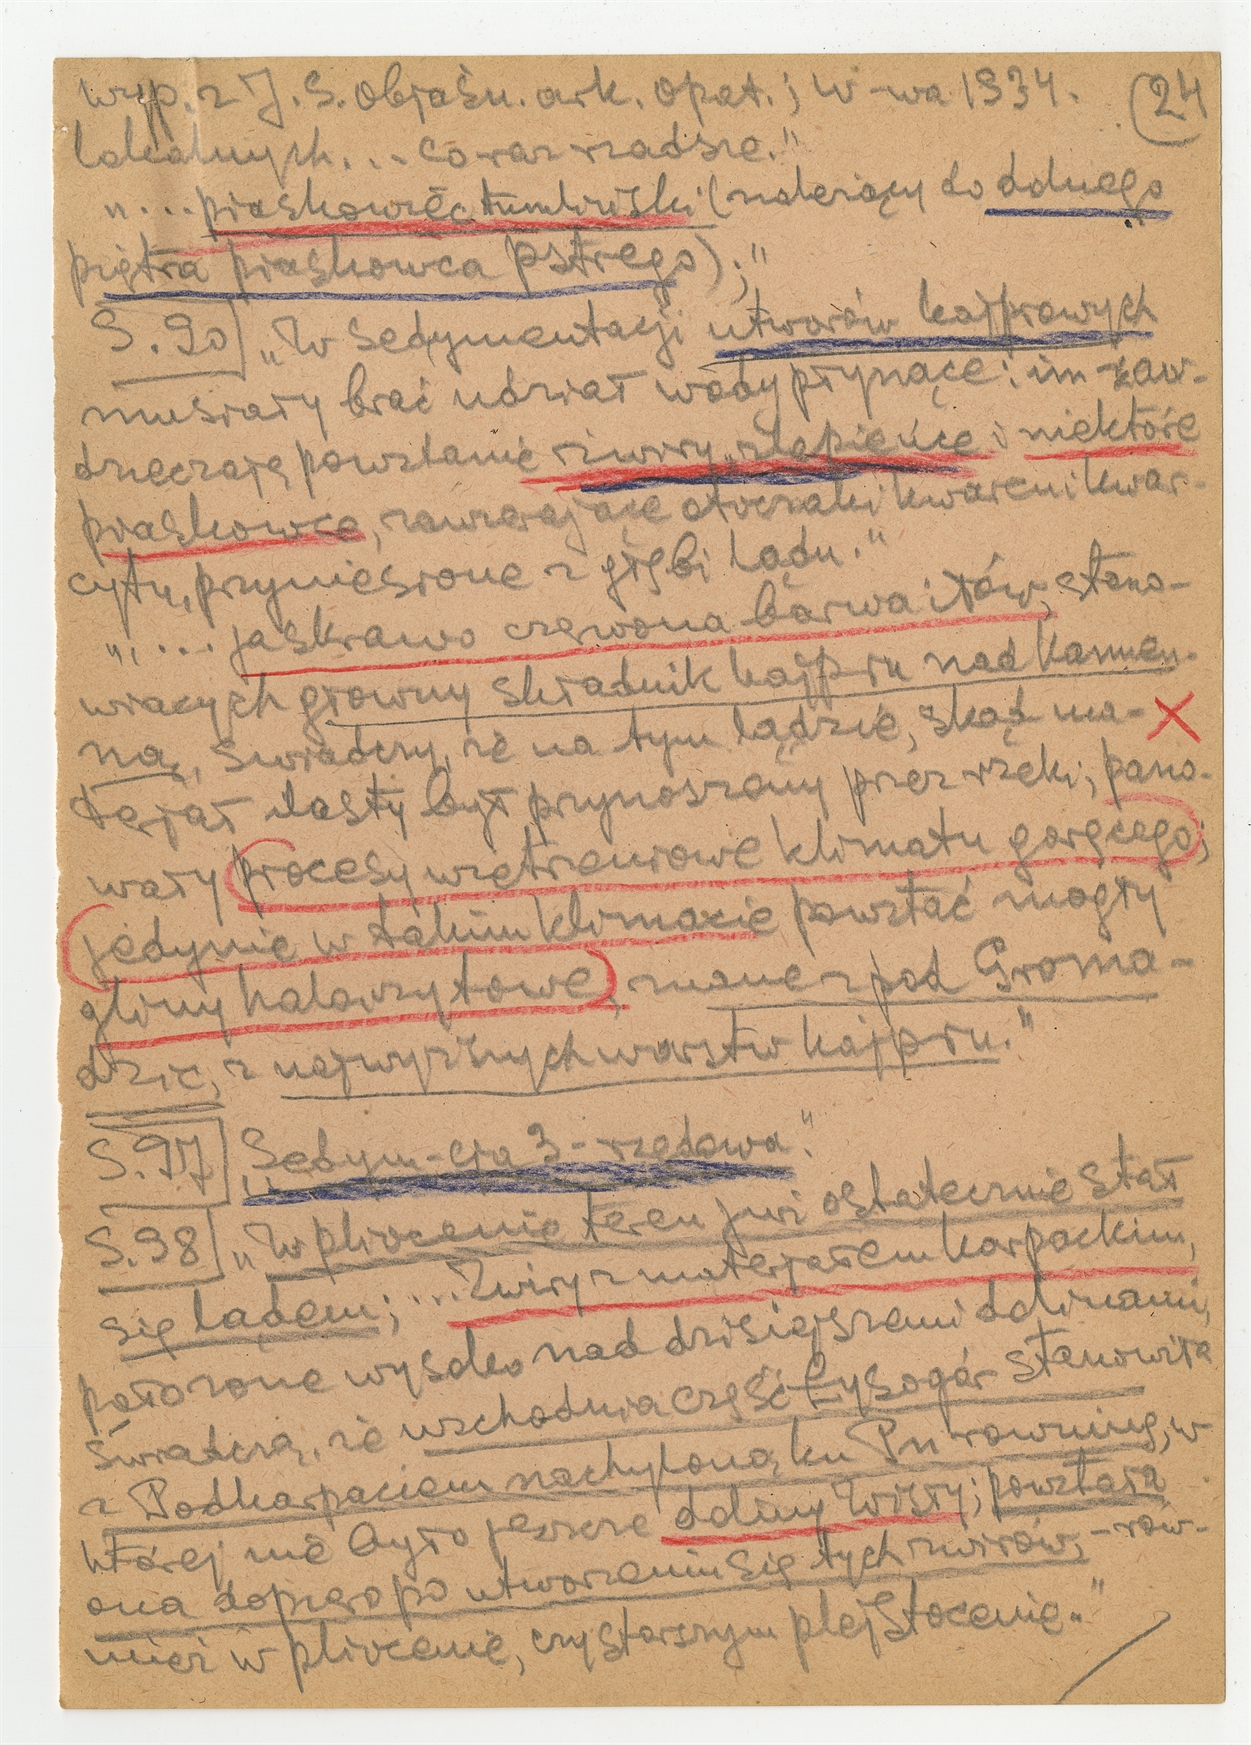 wyp. z J. S. Objaśn. ark. opat.; W-wa 1934. (24
lokalnych... coraz rzadsze."
"... piaskowiec tumliński (należący do dolnego
piętra piaskowca pstrego);"
S. 90] „W sedymentacji utworów kajprowych
musiały brać udział wody płynące: im zaw-
dzięczają powstanie żwiry, zlepieńce i niektóre
piaskowce, zawierające otoczaki kwarcu i kwar-
cytu, przyniesione z głębi lądu."
„... jaskrawo czerwona barwa iłów, stano-
wiących główny składnik kajpru nad Kamien-
ną, świadczy, że na tym lądzie, skąd ma-
terjał ilasty był przynoszony przez rzeki, pano-
wały procesy wietrzeniowe klimatu gorącego;
jedynie w takim klimacie powstać mogły
gliny haloizytowe, znane z pod Groma-
dzic, z najwyższych warstw kajpru."
S. 97] „Sedym-cja 3-rzędowa."
S. 98] „W pliocenie teren już ostatecznie stał
się lądem; ... Żwiry z materjałem karpackim,
położone wysoko nad dzisiejszemi dolinami,
świadczą, że wschodnia część Łysogór stanowiła
z Podkarpaciem nachyloną ku Pn równinę, w
której nie było jeszcze doliny Wisły; powstała
ona dopiero po utworzeniu się tych żwirów, - rów-
nież w pliocenie, czy starszym plejstocenie."